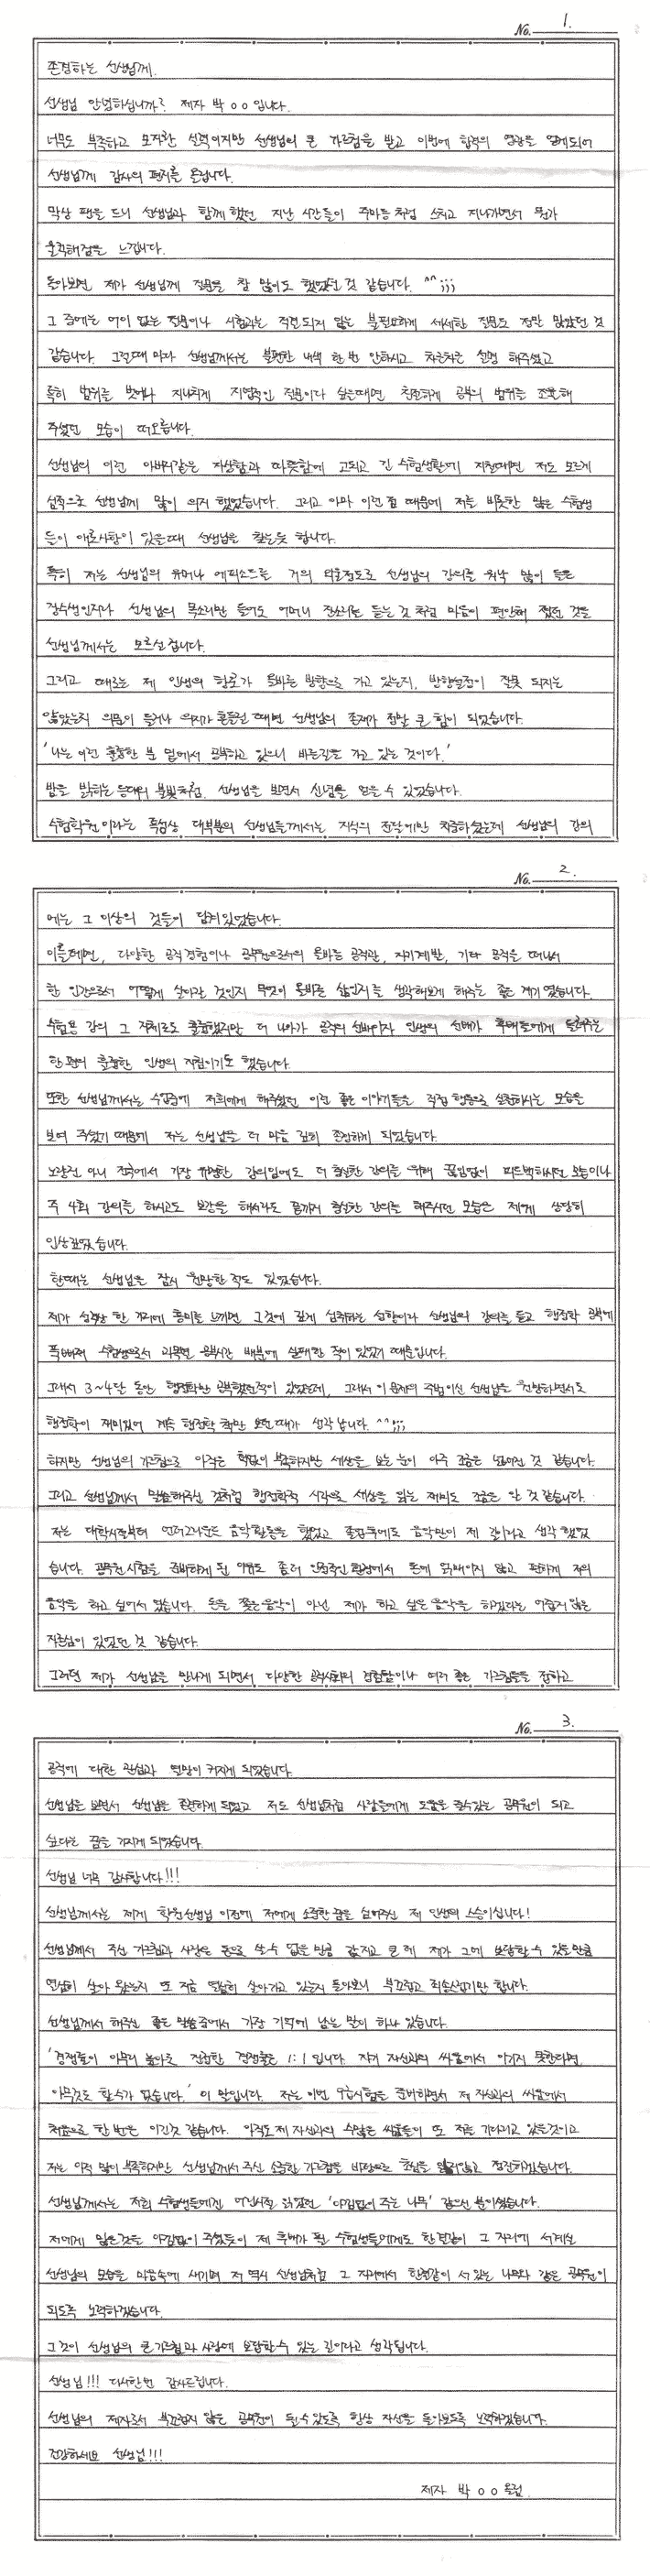 No. 1.
존경하는 선생님께.
선생님 안녕하십니까? 제자 박ㅇㅇ입니다.
너무도 부족하고 모자란 실력이지만 선생님의 큰 가르침을 받고 이번에 합격의 영광을 얻게되어
선생님께 감사의 편지를 올립니다.
막상 펜을 드니 선생님과 함께 했던 지난 시간들이 주마등처럼 스치고 지나가면서 뭔가
울컥해짐을 느낍니다.
돌아보면 제가 선생님께 질문을 참 많이도 했었던 것 같습니다. ^^;;;
그 중에는 어이 없는 질문이나 시험과는 직결되지 않는 불필요하게 세세한 질문도 정말 많았던 것
같습니다. 그럴때 마다 선생님께서는 불편한 내색 한 번 안하시고 차근차근 설명 해주셨고
특히 범위를 벗어나 지나치게 지엽적인 질문이다 싶을때면 친절하게 공부의 범위를 조율해
주셨던 모습이 떠오릅니다.
선생님의 이런 아버지같은 자상함과 따뜻함에 고되고 긴 수험생활에 지칠때면 저도 모르게
심적으로 선생님께 많이 의지 했었습니다. 그리고 아마 이런 점 때문에 저를 비롯한 많은 수험생
들이 애로사항이 있을때 선생님을 찾는듯 합니다.
특히 저는 선생님의 유머나 에피소드를 거의 외울정도로 선생님의 강의를 워낙 많이 들은
장수생인지라 선생님의 목소리만 들어도 어머니 잔소리를 듣는 것 처럼 마음이 편안해 졌던 것을
선생님께서는 모르실 겁니다.
그리고 때로는 제 인생의 항로가 올바른 방향으로 가고 있는지, 방향설정이 잘못 되지는
않았는지 의문이 들거나 의지가 흔들릴 때면 선생님의 존재가 정말 큰 힘이 되었습니다.
'나는 이런 훌륭한 분 밑에서 공부하고 있으니 바른길을 가고 있는 것이다.'
밤을 밝히는 등대의 불빛처럼, 선생님을 보면서 신념을 얻을 수 있었습니다.
수험학원이라는 특성상 대부분의 선생님들께서는 지식의 전달에만 치중하셨는데 선생님의 강의
No. 2.
에는 그 이상의 것들이 담겨있었습니다.
이를테면, 다양한 공직경험이나 공무원으로서의 올바른 공직관, 자기계발, 기타 공직을 떠나서
한 인간으로서 어떻게 살아갈 것인지 무엇이 올바른 삶인지를 생각해보게 해주는 좋은 계기였습니다.
수험용 강의 그 자체로도 훌륭했지만 더 나아가 공직의 선배이자 인생의 선배가 후배들에게 들려주는
한편의 훌륭한 인생의 지침이기도 했습니다.
또한 선생님께서는 수업중에 저희에게 해주셨던 이런 좋은 이야기들을 직접 행동으로 실천하시는 모습을
보여 주셨기 때문에 저는 선생님을 더 마음 깊이 존경하게 되었습니다.
노량진 아니 전국에서 가장 유명한 강의임에도 더 충실한 강의를 위해 끊임없이 피드백하시던 모습이나
주 4회 강의를 하시고도 보강을 해서라도 끝까지 충실한 강의를 해주시던 모습은 제게 상당히
인상깊었습니다.
한때는 선생님을 잠시 원망한 적도 있었습니다.
제가 성격상 한 가지에 흥미를 느끼면 그것에 깊게 심취하는 성향이라 선생님의 강의를 듣고 행정학 공부에
푹빠져 수험생으로서 과목별 공부시간 배분에 실패한 적이 있었기 때문입니다.
그래서 3~4달 동안 행정학만 공부했던적이 있었는데, 그래서 이 문제의 주범이신 선생님을 원망하면서도
행정학이 재미있어 계속 행정학 책만 보던때가 생각납니다. ^^;;;
하지만 선생님의 가르침으로 아직은 한없이 부족하지만 세상을 보는 눈이 아주 조금은 넓어진 것 같습니다.
그리고 선생님께서 말씀해주신 것처럼 행정학적 시각으로 세상을 읽는 재미도 조금은 안 것 같습니다.
저는 대학시절부터 언더그라운드 음악활동을 했었고 졸업후에도 음악만이 제 길이라고 생각했었
습니다. 공무원 시험을 준비하게 된 이유도 좀더 안정적인 환경에서 돈에 얽매이지 않고 편하게 저의
음악을 하고 싶어서 였습니다. 돈을 쫓는음악이 아닌 제가 하고 싶은 음악을 하겠다는 어줍지 않은
자존심이 있었던 것 같습니다.
그러던 제가 선생님을 만나게 되면서 다양한 공직사회의 경험담이나 여러 좋은 가르침들을 접하고
No. 3.
공직에 대한 관심과 열망이 커지게 되었습니다.
선생님을 보면서 선생님을 존경하게 되었고 저도 선생님처럼 사람들에게 도움을 줄수있는 공무원이 되고
싶다는 꿈을 가지게 되었습니다.
선생님 너무 감사합니다!!!
선생님께서는 제게 학원선생님 이전에 저에게 소중한 꿈을 심어주신 제 인생의 스승이십니다!
선생님께서 주신 가르침과 사랑은 돈으로 살 수 없을 만큼 값지고 큰 데 제가 그에 보답할 수 있을 만큼
열심히 살아 왔는지 또 지금 열심히 살아가고 있는지 돌아보니 부끄럽고 죄송스럽기만 합니다.
선생님께서 해주신 좋은 말씀중에서 가장 기억에 남는 말이 하나 있습니다.
'경쟁률이 아무리 높아도 진정한 경쟁률은 1:1 입니다. 자기 자신과의 싸움에서 이기지 못한다면
아무것도 할수가 없습니다.' 이 말입니다. 저는 이번 9급시험을 준비하면서 제 자신과의 싸움에서
처음으로 한 번은 이긴것 같습니다. 아직도 제 자신과의 수많은 싸움들이 또 저를 기다리고 있을것이고
저는 아직 많이 부족하지만 선생님께서 주신 소중한 가르침을 바탕으로 초심을 잃지않고 정진하겠습니다.
선생님께서는 저희 수험생들에겐 어린시절 읽었던 '아낌없이 주는 나무' 같으신 분이셨습니다.
저에게 많은것을 아낌없이 주셨듯이 제 후배가 될 수험생들에게도 한결같이 그 자리에 서계실
선생님의 모습을 마음속에 새기며 저 역시 선생님처럼 그 자리에서 한결같이 서 있는 나무와 같은 공무원이
되도록 노력하겠습니다.
그것이 선생님의 큰 가르침과 사랑에 보답할수 있는 길이라고 생각됩니다.
선생님!!! 다시한번 감사드립니다.
선생님의 제자로서 부끄럽지 않은 공무원이 될 수 있도록 항상 자신을 돌아보도록 노력하겠습니다.
건강하세요 선생님!!!
제자 박 ㅇㅇ 올림.